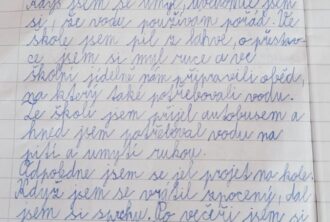 Když jsem se umyl, uvědomil jsem
si, že vodu používám pořád. Ve
škole jsem pil z lahve, o přestáv-
ce jsem si myl ruce a ve
školní jídelně nám připravili oběd,
na který také potřebovali vodu.
Ze školy jsem přijel autobusem a
hned jsem potřeboval vodu na
pití a umytí rukou.
Odpoledne jsem se jel projet na kole.
Když jsem se vrátil zpocený, dal
jsem si sprchu. Po večeři jsem si